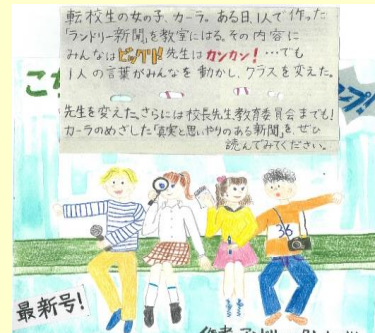 転校生の女の子、カーラ。ある日、1人で作った
「ランドリー新聞」を教室にはる。その内容に
みんなはビックリ!先生はカンカン!…でも
1人の言葉がみんなを動かし、クラスを変えた。
先生を変えた。さらには校長先生、教育委員会までも!
カーラのめざした「真実と思いやりのある新聞」を、ぜひ
読んでみてください。
こち
プ!
36
最新号!
作者 アンドリュー